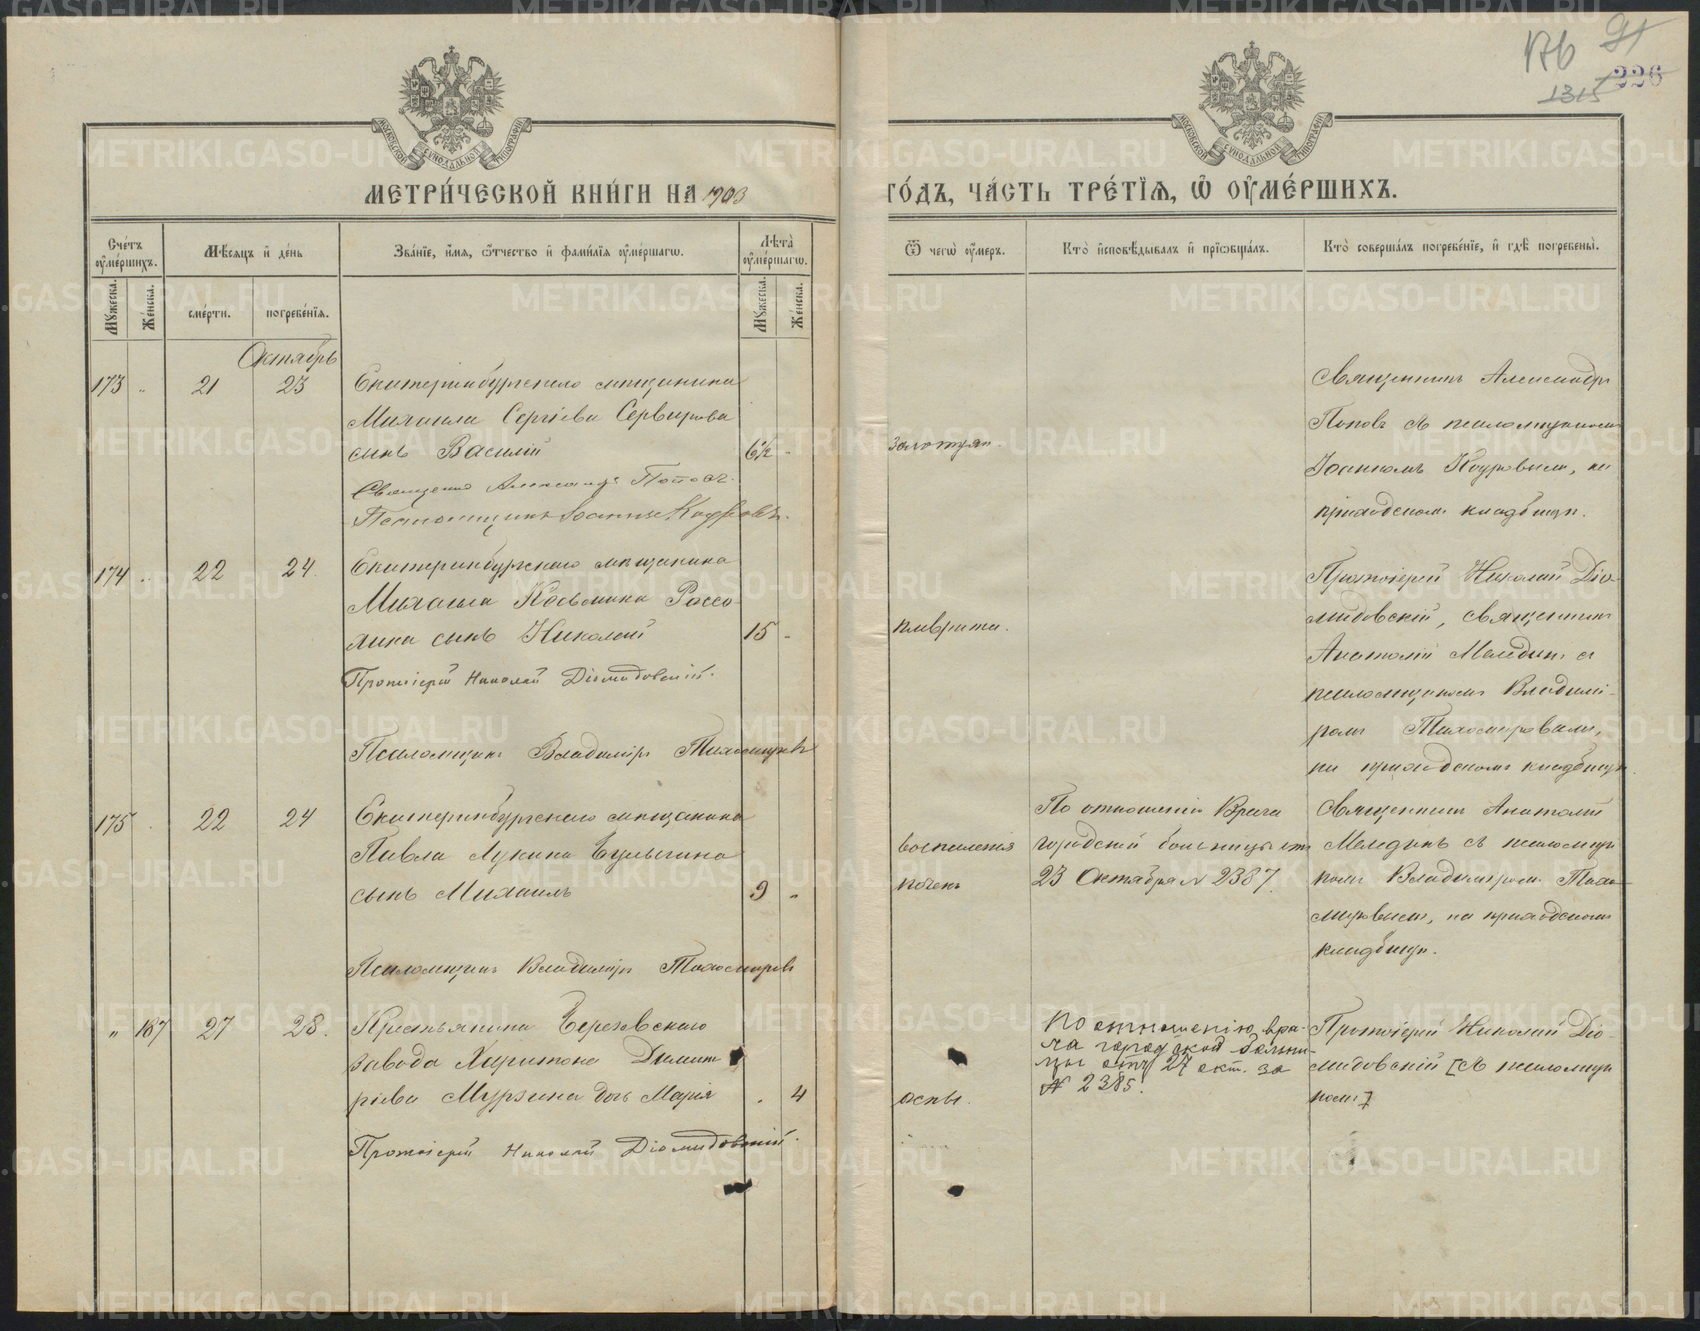 176 91
1315 226
МОСКОВСКОЙ СУНОДАЛЬНОЙ ТИПОГРАФІИ
МОСКОВСКОЙ СУНОДАЛЬНОЙ ТИПОГРАФІИ
МЕТРИ́ЧЕСКОЙ КНИ́ГИ НА 1903
ГО́ДЪ, ЧА́СТЬ ТРЕ́ТІѦ, Ѡ҆ ОУ҆МЕ́РШИХЪ.
Сче́тъ оу҆ме́ршихъ.
Мѣ́сѧцъ и҆ де́нь
Зва́нїе, и҆́мѧ, ѻ҆́тчество и҆ фами́лїѧ оу҆ме́ршагѡ.
Лѣ́та оу҆ме́ршагѡ.
Ѿ чегѡ̀ оу҆́меръ.
Кто̀ и҆сповѣ́дывалъ и҆ прїѡбща́лъ.
Кто̀ соверша́лъ погребе́нїе, и҆ гдѣ̀ погребены̀.
Мꙋ́жеска.
Же́нска.
сме́рти.
погребе́нїѧ.
Мꙋ́жеска.
Же́нска.
Октябрь
173 " 21 23 Екатеринбургскаго мѣщанина
Михаила Сергіева
сынъ Василій 6½ "
Священникъ Александръ Поповъ.
Псаломщикъ Іоаннъ Кадровъ.
Священникъ Александръ
Поповъ съ псаломщикомъ
Іоанномъ Кадровымъ, на
приходскомъ кладбищѣ.
174 " 22 24 Екатеринбургскаго мѣщанина
Михаила Косьмина Россо-
лина сынъ Николай 15 "
Протоіерей Николай Діомидовскій.
Псаломщикъ Владиміръ Тихомировъ
плеврита.
Протоіерей Николай Діо-
мидовскій, священникъ
Анатолій Меледин съ
псаломщикомъ Владимі-
ромъ Тихомировымъ,
на приходскомъ кладбищѣ.
175 " 22 24 Екатеринбургскаго мѣщанина
Павла Лукина
сынъ Михаилъ 9 "
Псаломщикъ Владиміръ Тихомировъ
воспаленія
почекъ
По отношенію Врача
городской больницы отъ
23 Октября № 2387.
Священникъ Анатолій
Меледин съ псаломщи-
комъ Владиміромъ Тихо-
мировымъ, на приходскомъ
кладбищѣ.
" 187 27 28. Крестьянина Березовскаго
завода Харитона Димит-
ріева Мурзина дочь Марія " 4
Протоіерей Николай Діомидовскій.
оспы.
По отношенію вра-
ча городской больни-
цы отъ 27 окт. за
№ 2385.
Протоіерей Николай Діо-
мидовскій [съ псаломщи-
комъ]